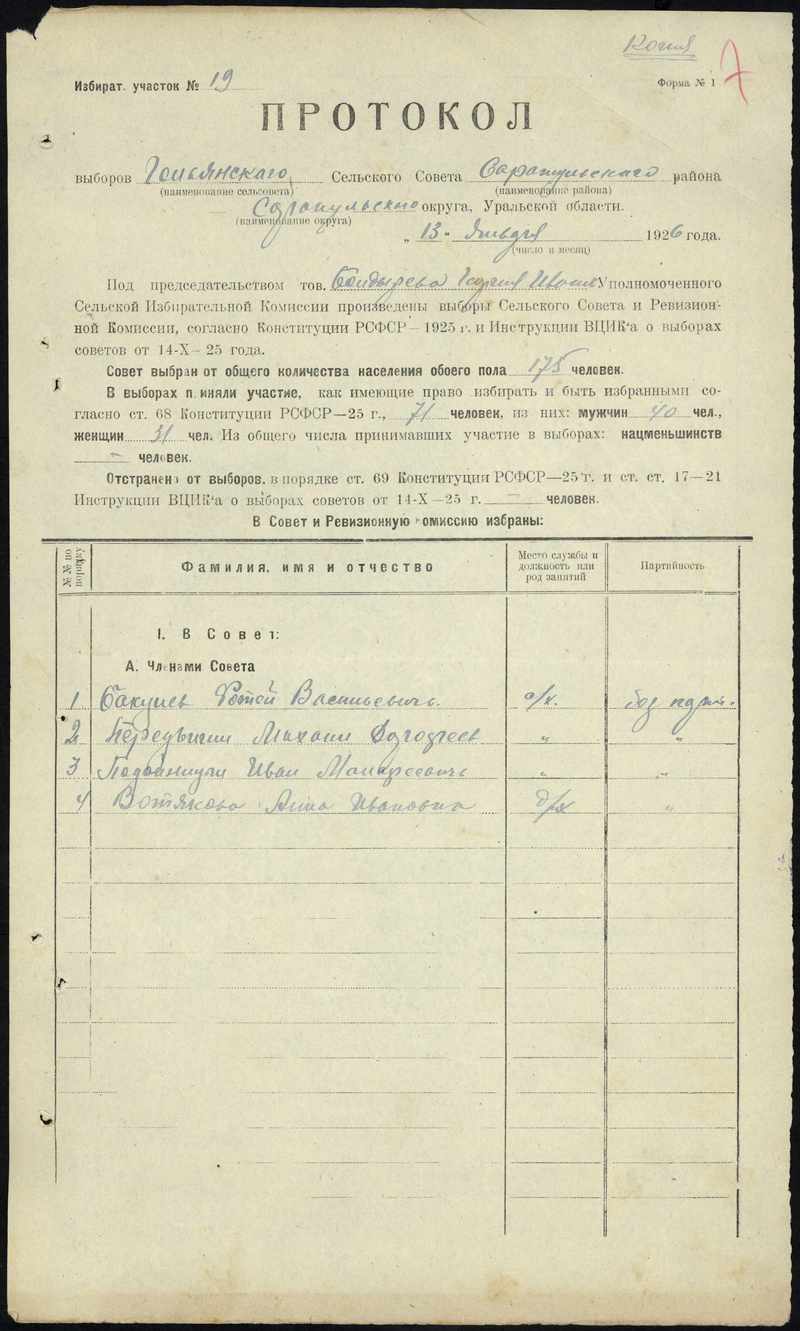 Копия
7
Избират. участок № 19
Форма № 1
ПРОТОКОЛ
выборов Гольянскаго Сельского Совета Сарапульскаго района
(наименование сельсовета) (наименование района)
Сарапульскаго округа, Уральской области.
(наименование округа)
„ 13 " Января 1926 года.
(число и месяц)
Под председательством тов. Уполномоченного
Сельской Избирательной Комиссии произведены выборы Сельского Совета и Ревизион-
ной Комиссии, согласно Конституции РСФСР—1925 г. и Инструкции ВЦИК'а о выборах
советов от 14-X—25 года.
Совет выбран от общего количества населения обоего пола 175 человек.
В выборах приняли участие, как имеющие право избирать и быть избранными со-
гласно ст. 68 Конституции РСФСР—25 г., 71 человек, из них: мужчин 40 чел.,
женщин 31 чел. Из общего числа принимавших участие в выборах: нацменьшинств
— человек.
Отстранено от выборов, в порядке ст. 69 Конституции РСФСР—25 г. и ст. ст. 17—21
Инструкции ВЦИК'а о выборах советов от 14-X—25 г. — человек.
В Совет и Ревизионную комиссию избраны:
№№ по порядку
Фамилия, имя и отчество
Место службы и должность или род занятий
Партийность
I. В Совет:
А. Членами Совета
1 Васильевичъ с/х. без парт.
2 Михаил „ „
3 Иван „ „
4 Вотякова Анна Ивановна д/х „